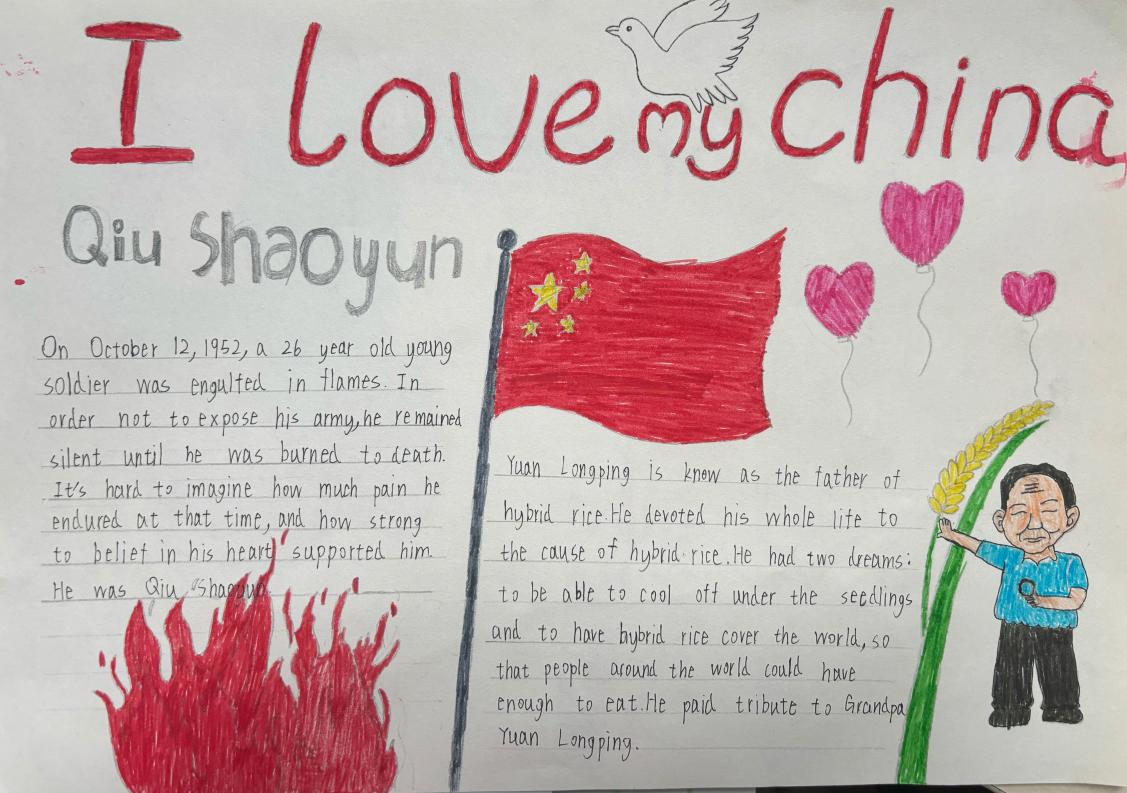 I love my china
Qiu Shaoyun
On October 12, 1952, a 26 year old young
soldier was engulted in flames. In
order not to expose his army, he remained
silent until he was burned to death.
It's hard to imagine how much pain he
endured at that time, and how strong
to belief in his heart supported him.
He was Qiu Shaoyun.
Yuan Longping is know as the father of
hybrid rice. He devoted his whole life to
the cause of hybrid rice. He had two dreams:
to be able to cool off under the seedlings
and to have hybrid rice cover the world, so
that people around the world could have
enough to eat. He paid tribute to Grandpa
Yuan Longping.